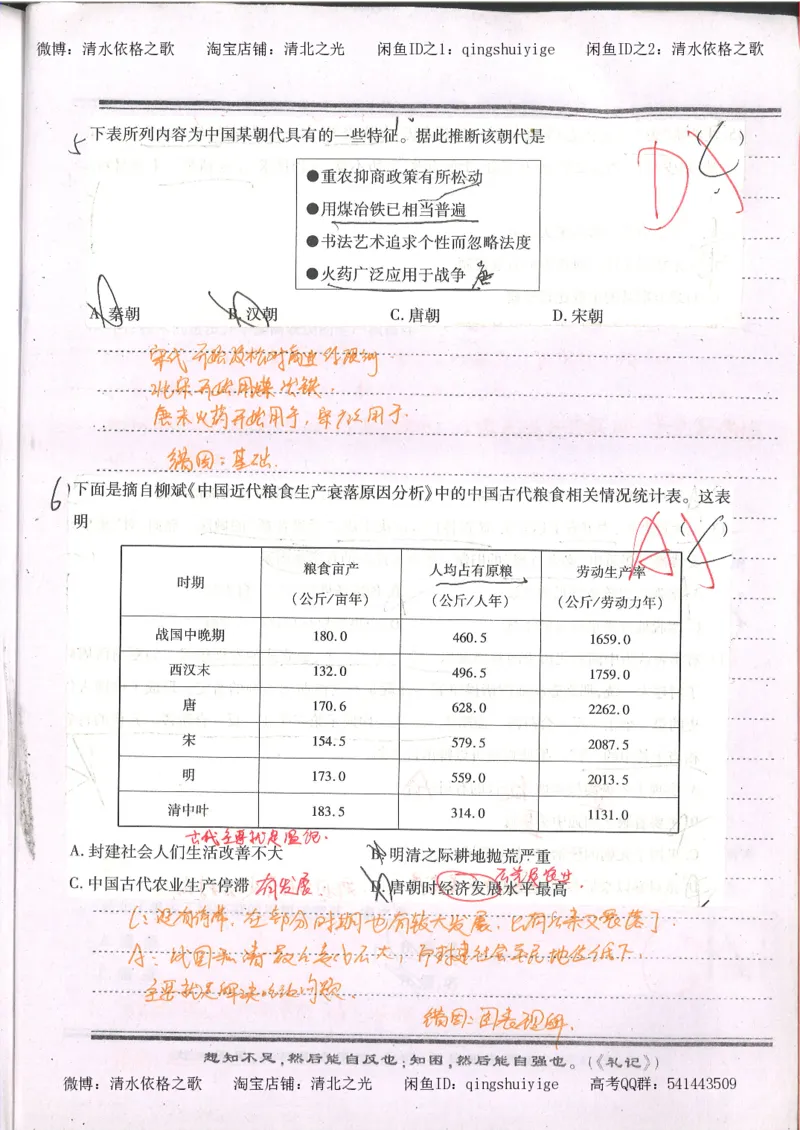 微博：清水依格之歌 淘宝店铺：清北之光 闲鱼ID之1：qingshuiyige 闲鱼ID之2：清水依格之歌
5 下表所列内容为中国某朝代具有的一些特征。据此推断该朝代是 ( C ) D
●重农抑商政策有所松动
●用煤冶铁已相当普遍
●书法艺术追求个性而忽略法度
●火药广泛应用于战争 唐
A. 秦朝 B. 汉朝 C. 唐朝 D. 宋朝
宋代开始放松对商业的限制
北宋开始用煤冶铁.
唐末火药开始用于，宋广泛用于.
错因：基础.
6) 下面是摘自柳斌《中国近代粮食生产衰落原因分析》中的中国古代粮食相关情况统计表。这表
明 ( C ) A
时期 粮食亩产（公斤/亩年） 人均占有原粮（公斤/人年） 劳动生产率（公斤/劳动力年）
战国中晚期 180.0 460.5 1659.0
西汉末 132.0 496.5 1759.0
唐 170.6 628.0 2262.0
宋 154.5 579.5 2087.5
明 173.0 559.0 2013.5
清中叶 183.5 314.0 1131.0
古代主要就是温饱.
A. 封建社会人们生活改善不大 B. 明清之际耕地抛荒严重
C. 中国古代农业生产停滞 有发展. D. 唐朝时经济发展水平最高
C：没有停滞，在部分时期也有较大发展，
A：战国和清
主要就是解决吃饭问题.
错因：图表理解.
想知不足，然后能自反也；知困，然后能自强也。(《礼记》)
微博：清水依格之歌 淘宝店铺：清北之光 闲鱼ID：qingshuiyige 高考QQ群：541443509